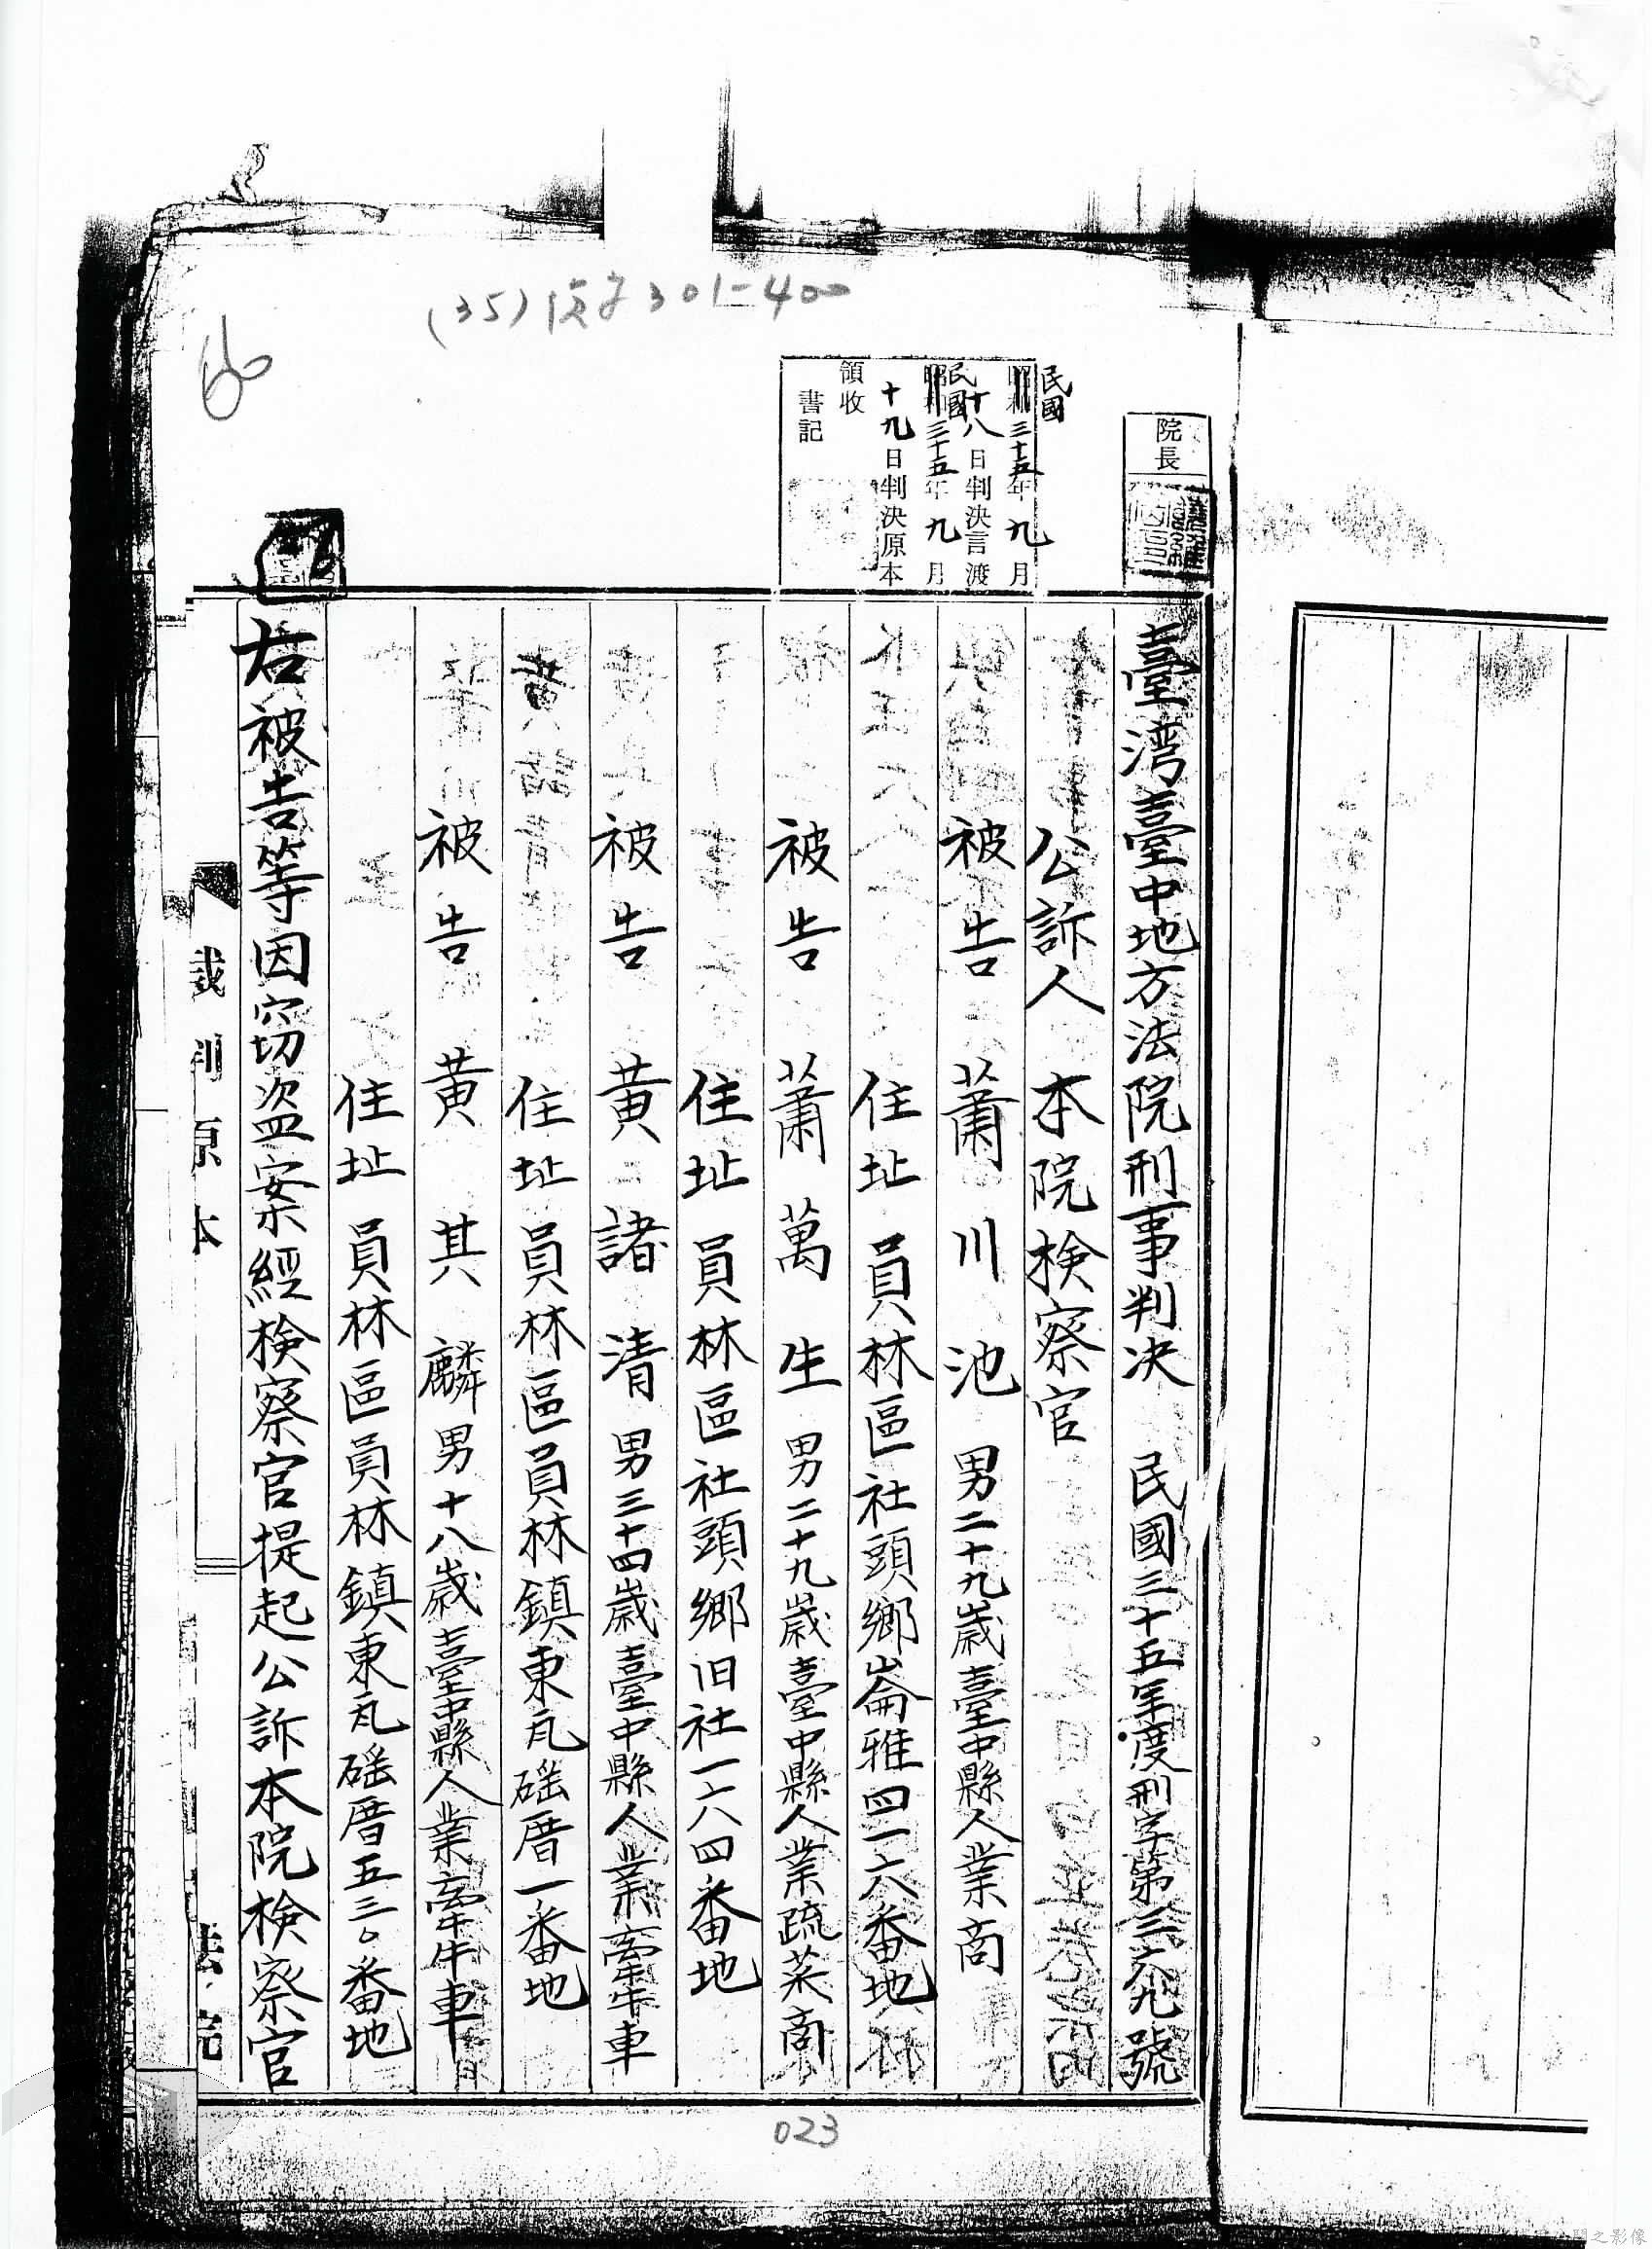 (35) 301-400
院長
民國
三十五年九月
十八日判決言渡
民國
三十五年九月
十九日判決原本
領收
書記
臺湾臺中地方法院刑事判决 民國三十五年度刑字第三六九號
公訴人 本院検察官
被告 蕭川池 男二十九歳臺中縣人業商
住址 員林區社頭鄉崙雅四一六番地
被告 蕭萬生 男二十九歳臺中縣人業疏菜商
住址 員林區社頭鄉旧社一六四番地
被告 黄諸清 男三十四歳臺中縣人業牽牛車
住址 員林區員林鎮東瓦磘厝一番地
被告 黄其麟 男十八歳臺中縣人業牽牛車
住址 員林區員林鎮東瓦磘厝五三〇番地
右被告等因窃盗案經検察官提起公訴本院検察官
裁判原本
法院
023